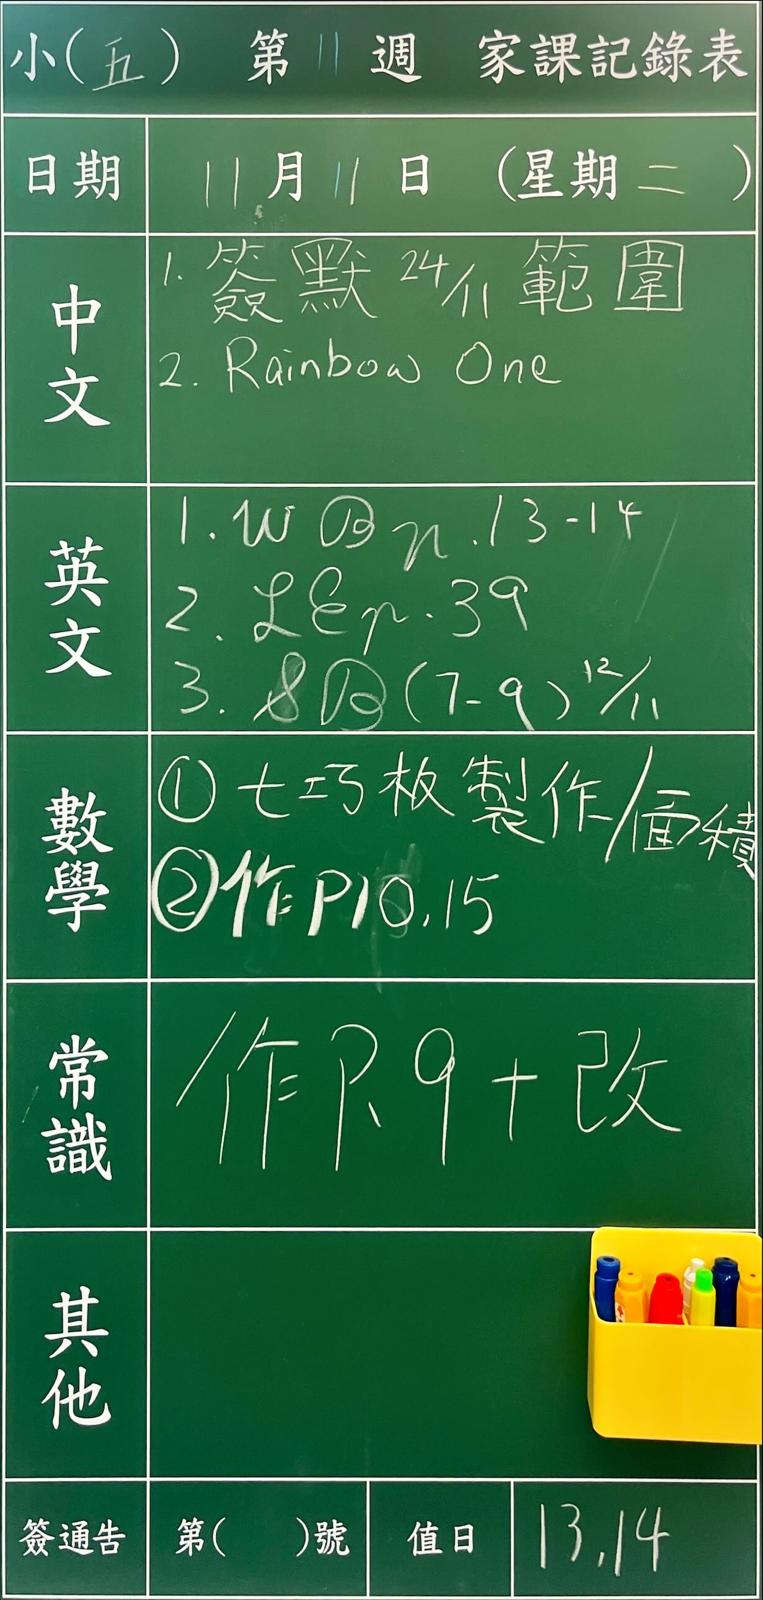 小(五) 第11週 家課記錄表
日期 11月11日 (星期二)
中文
1. 簽默 24/11 範圍
2. Rainbow One
英文
1. WB p.13-14
2. LE p.39
3. SB (7-9) 12/11
數學
① 七巧板製作/面積
② 作P10,15
常識
作P.9+改
其他
簽通告 第( )號 值日 13,14